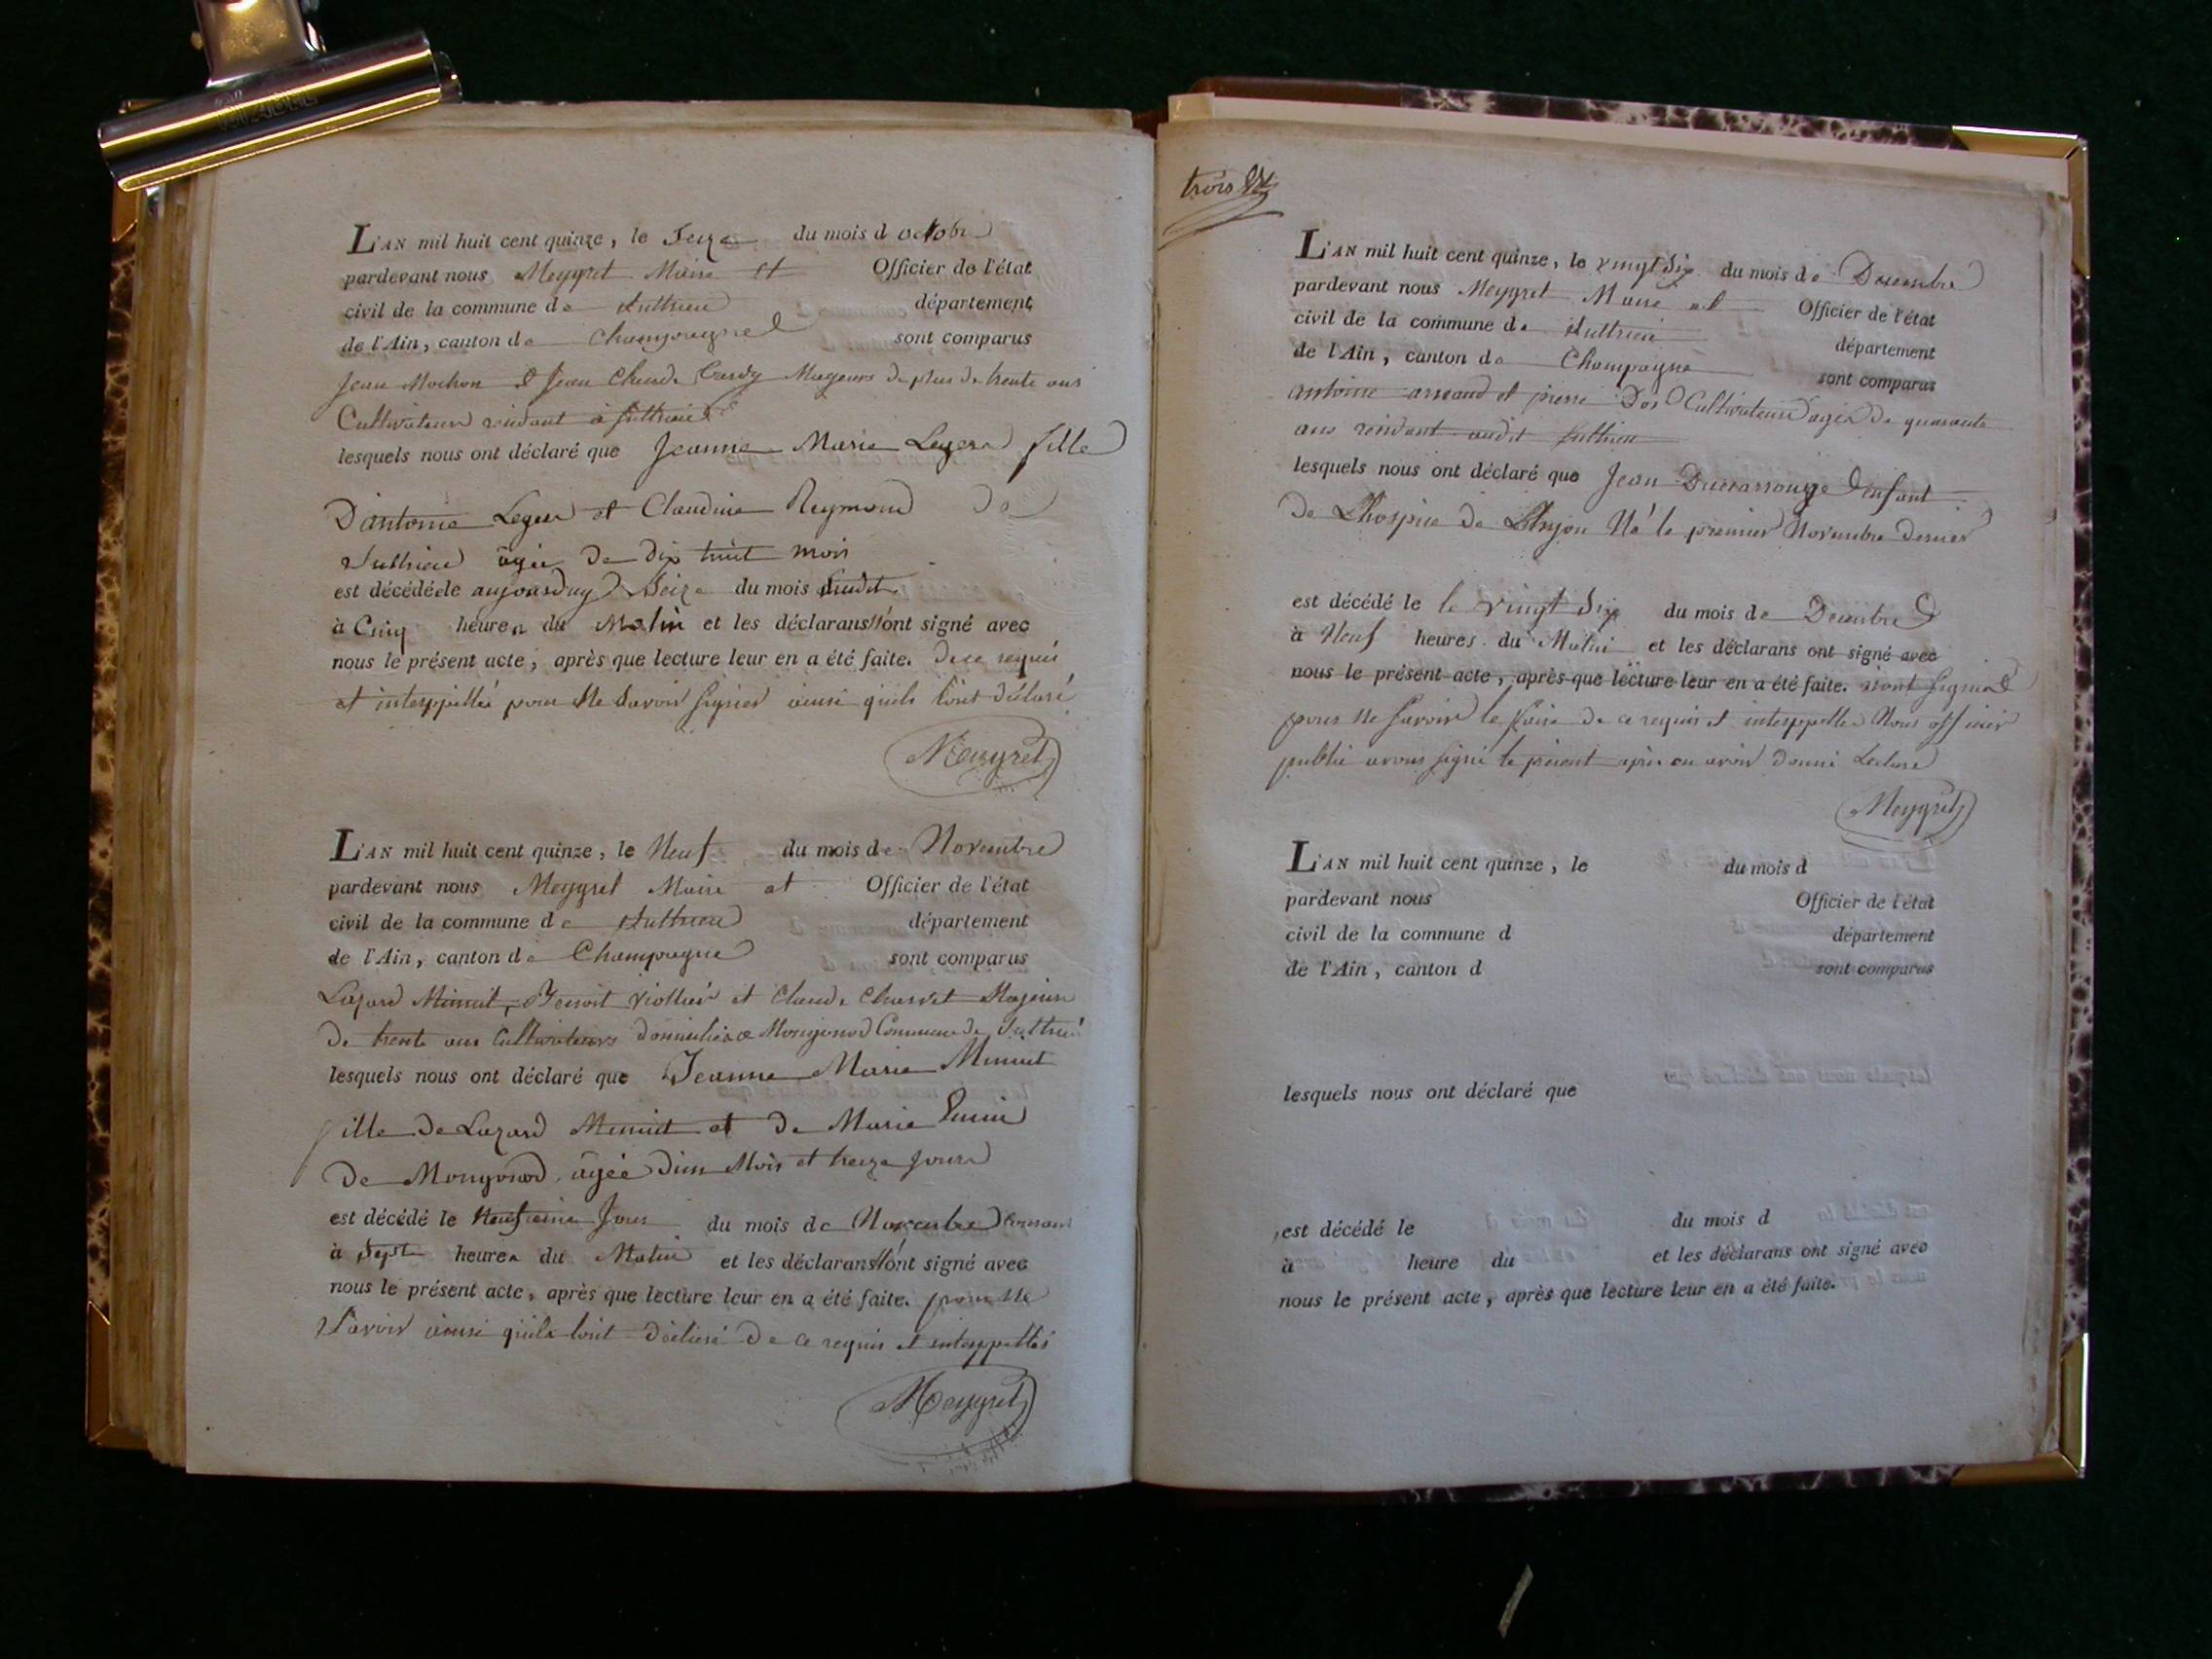 L'AN mil huit cent quinze, le Seize du mois d octobre
pardevant nous Meygret Maire et Officier de l'état
civil de la commune de Suthrieu département
de l'Ain, canton de Champagne sont comparus
Jean Mochon et Jean Claude Mageurs de plus de trente ans
Cultivateurs residant à Suthrieu
lesquels nous ont déclaré que Jeanne Marie Legere fille
D'antoine Leger et Claudine Reymond de
Suthrieu âgée de dix huit mois
est décédée le aujourduy Seize du mois susdit
à Cinq heures du Matin et les déclarans n'ont signé avec
nous le présent acte, après que lecture leur en a été faite. de ce requis
et interppellés pour Ne Savoir Signer ainsi quils l'ont déclaré
Meygret
L'AN mil huit cent quinze, le Neuf du mois de Novembre
pardevant nous Meygret Maire et Officier de l'état
civil de la commune de Suthrieu département
de l'Ain, canton de Champagne sont comparus
Lazard Mimit, Benoit Viollier et Claude Charvet Majeurs
de trente ans Cultivateurs domiciliés a Mongonod Commune de Suthrieu
lesquels nous ont déclaré que Jeanne Marie Mimit
fille de Lazard Mimit et de Marie
de Mongonod, âgée d'un Mois et treize Jours
est décédé le Neufvieme Jour du mois de Novembre Courant
à Sept heures du Matin et les déclarans n'ont signé avec
nous le présent acte, après que lecture leur en a été faite. pour Ne
Savoir ainsi quils l'ont déclaré de ce requis et interppellés
Meygret
trois
L'AN mil huit cent quinze, le vingt Six du mois de Decembre
pardevant nous Meygret Maire et Officier de l'état
civil de la commune de Suthrieu département
de l'Ain, canton de Champagne sont comparus
antoine arnaud et pierre Cultivateurs agés de quarante
ans residant audit Suthrieu
lesquels nous ont déclaré que Jean Ducarrouge Enfant
de Lhospice de Né le premier Novembre dernier
est décédé le le vingt Six du mois de Decembre
à Neuf heures du Matin et les déclarans ont signé avec
nous le présent acte, après que lecture leur en a été faite. n'ont signé
pour Ne Savoir le faire de ce requis et interppellés Nous officier
public avons signé le présent apres en avoir donné Lecture
Meygret
L'AN mil huit cent quinze, le du mois d
pardevant nous Officier de l'état
civil de la commune d département
de l'Ain, canton d sont comparus
lesquels nous ont déclaré que
est décédé le du mois d
à heure du et les déclarans ont signé avec
nous le présent acte, après que lecture leur en a été faite.